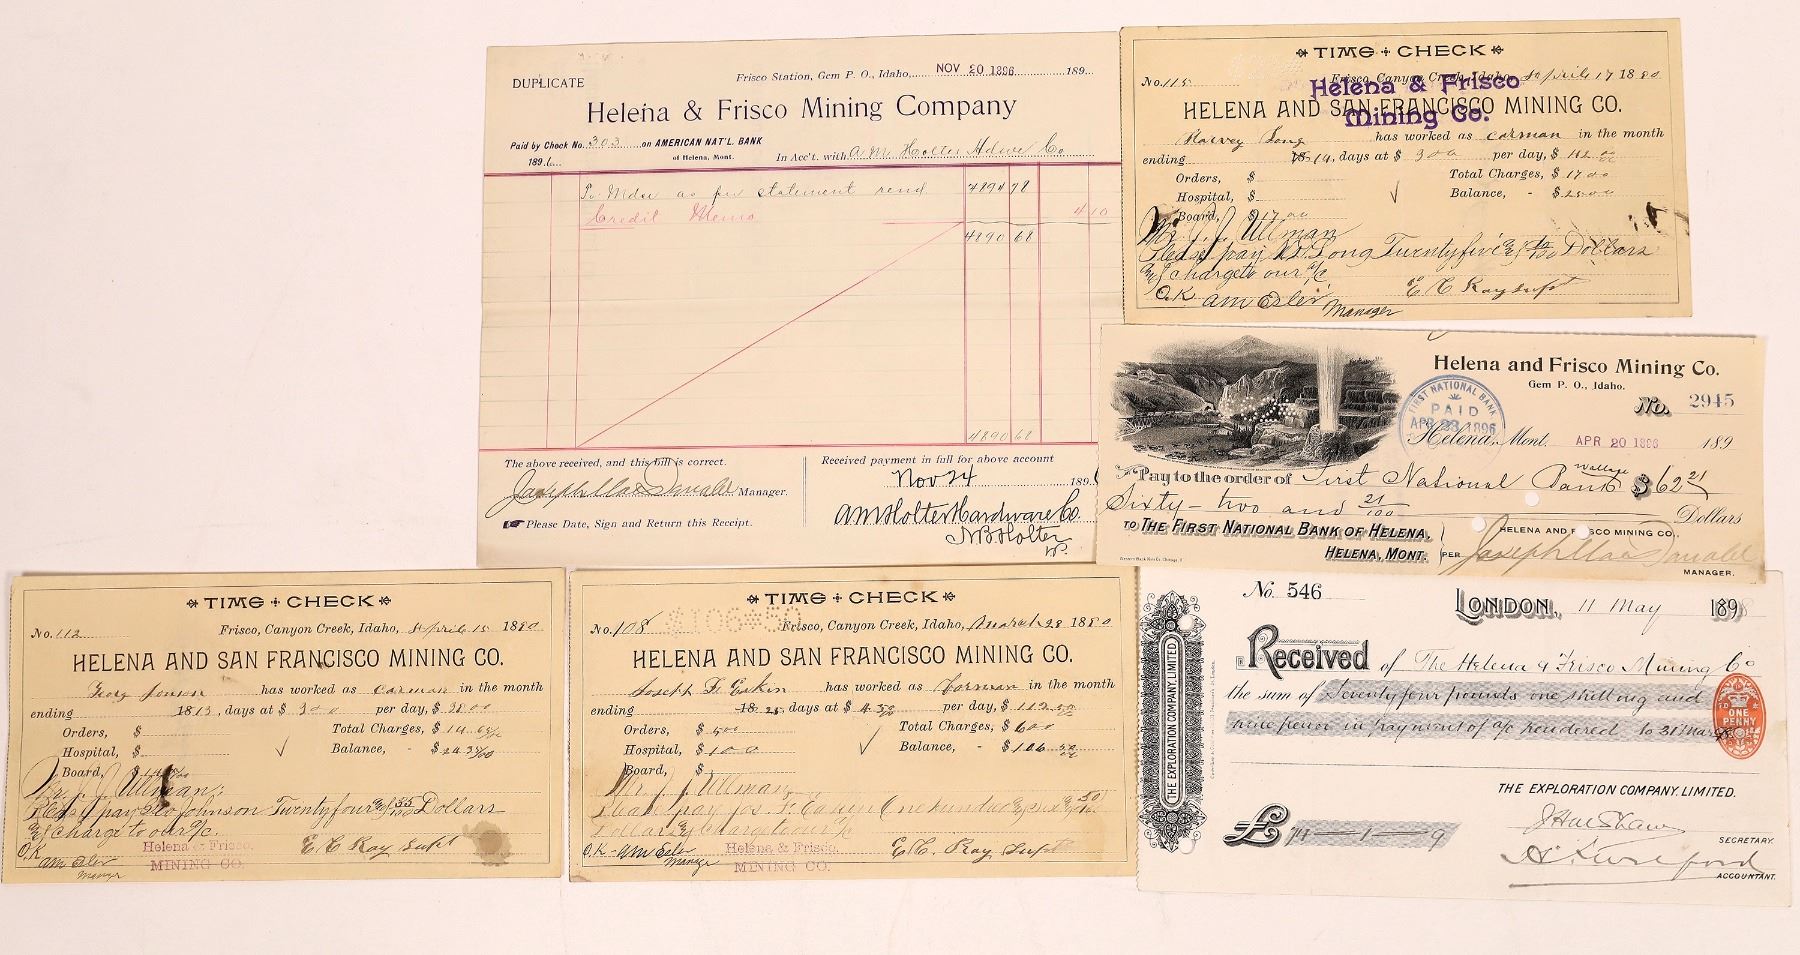 DUPLICATE
Frisco Station, Gem P. O., Idaho, NOV 20 1896 189
Helena & Frisco Mining Company
Paid by Check No. 303 on AMERICAN NAT'L BANK
189 of Helena, Mont.
In Acc't. with A.M. Holter Hdwe Co
To Mdse as per statement rend 4894 78
Credit Memo 4 10
4890 68
4890 68
The above received, and this bill is correct.
Joseph MacDonald Manager.
Please Date, Sign and Return this Receipt.
Received payment in full for above account
Nov 24 189
AM Holter Hardware Co.
NB Holter
TIME CHECK
No. 115 Frisco, Canyon Creek, Idaho, April 17 1890
Helena & Frisco
Mining Co.
HELENA AND SAN FRANCISCO MINING CO.
Harvey Long has worked as carman in the month
ending 14, days at $ 300 per day, $ 42 00
Orders, $ Total Charges, $ 17 00
Hospital, $ Balance, - $ 25 00
Board, $ 17 00
Mr. J. J. Ullman
Please pay H. Long Twentyfive & Dollars
& charge to our a/c.
O.K. AM Esler Manager
E C Ray Supt
Helena and Frisco Mining Co.
Gem P. O., Idaho.
No. 2945
FIRST NATIONAL BANK
PAID
APR 23 1896
Helena, Mont. APR 20 1896 189
Pay to the order of First National Bank Wallace $ 62 21
Sixty-two and 21/100 Dollars
TO THE FIRST NATIONAL BANK OF HELENA,
HELENA, MONT.
HELENA AND FRISCO MINING CO.
PER Joseph MacDonald
MANAGER.
TIME CHECK
No. 112 Frisco, Canyon Creek, Idaho, April 15 1890
HELENA AND SAN FRANCISCO MINING CO.
Georg Jonson has worked as carman in the month
ending 1813, days at $ 300 per day, $ 39 00
Orders, $ Total Charges, $ 14
Hospital, $ Balance, - $ 24
Board, $
Mr. J. J. Ullman,
Please pay Geo Johnson Twentyfour & 55/100 Dollars
& Charge to our a/c.
O.K. AM Esler
Manager
Helena & Frisco.
MINING CO.
E. C Ray Supt
TIME CHECK
$106$50
No. 108 Frisco, Canyon Creek, Idaho, March 28 1890
HELENA AND SAN FRANCISCO MINING CO.
Joseph F. Eakin has worked as Forman in the month
ending 18 25 days at $ 4.50 per day, $ 112 50
Orders, $ 500 Total Charges, $ 600
Hospital, $ 100 Balance, - $ 106 50
Board, $
Mr. J. J. Ullman
Please pay Jos. F. Eakin One hundred & six & 50
Dollars & Charge to our a/c
O.K. - AM Esler
Manager
Helena & Frisco,
MINING CO.
E. C. Ray Supt
THE EXPLORATION COMPANY, LIMITED.
No. 546
LONDON, 11 May 1898
Received of The Helena & Frisco Mining Co
the sum of Seventyfour pounds one shilling and
nine pence in payment of a/c rendered to 31 Mar 98
ONE PENNY
THE EXPLORATION COMPANY, LIMITED.
SECRETARY.
£ 74 - 1 - 9
ACCOUNTANT.